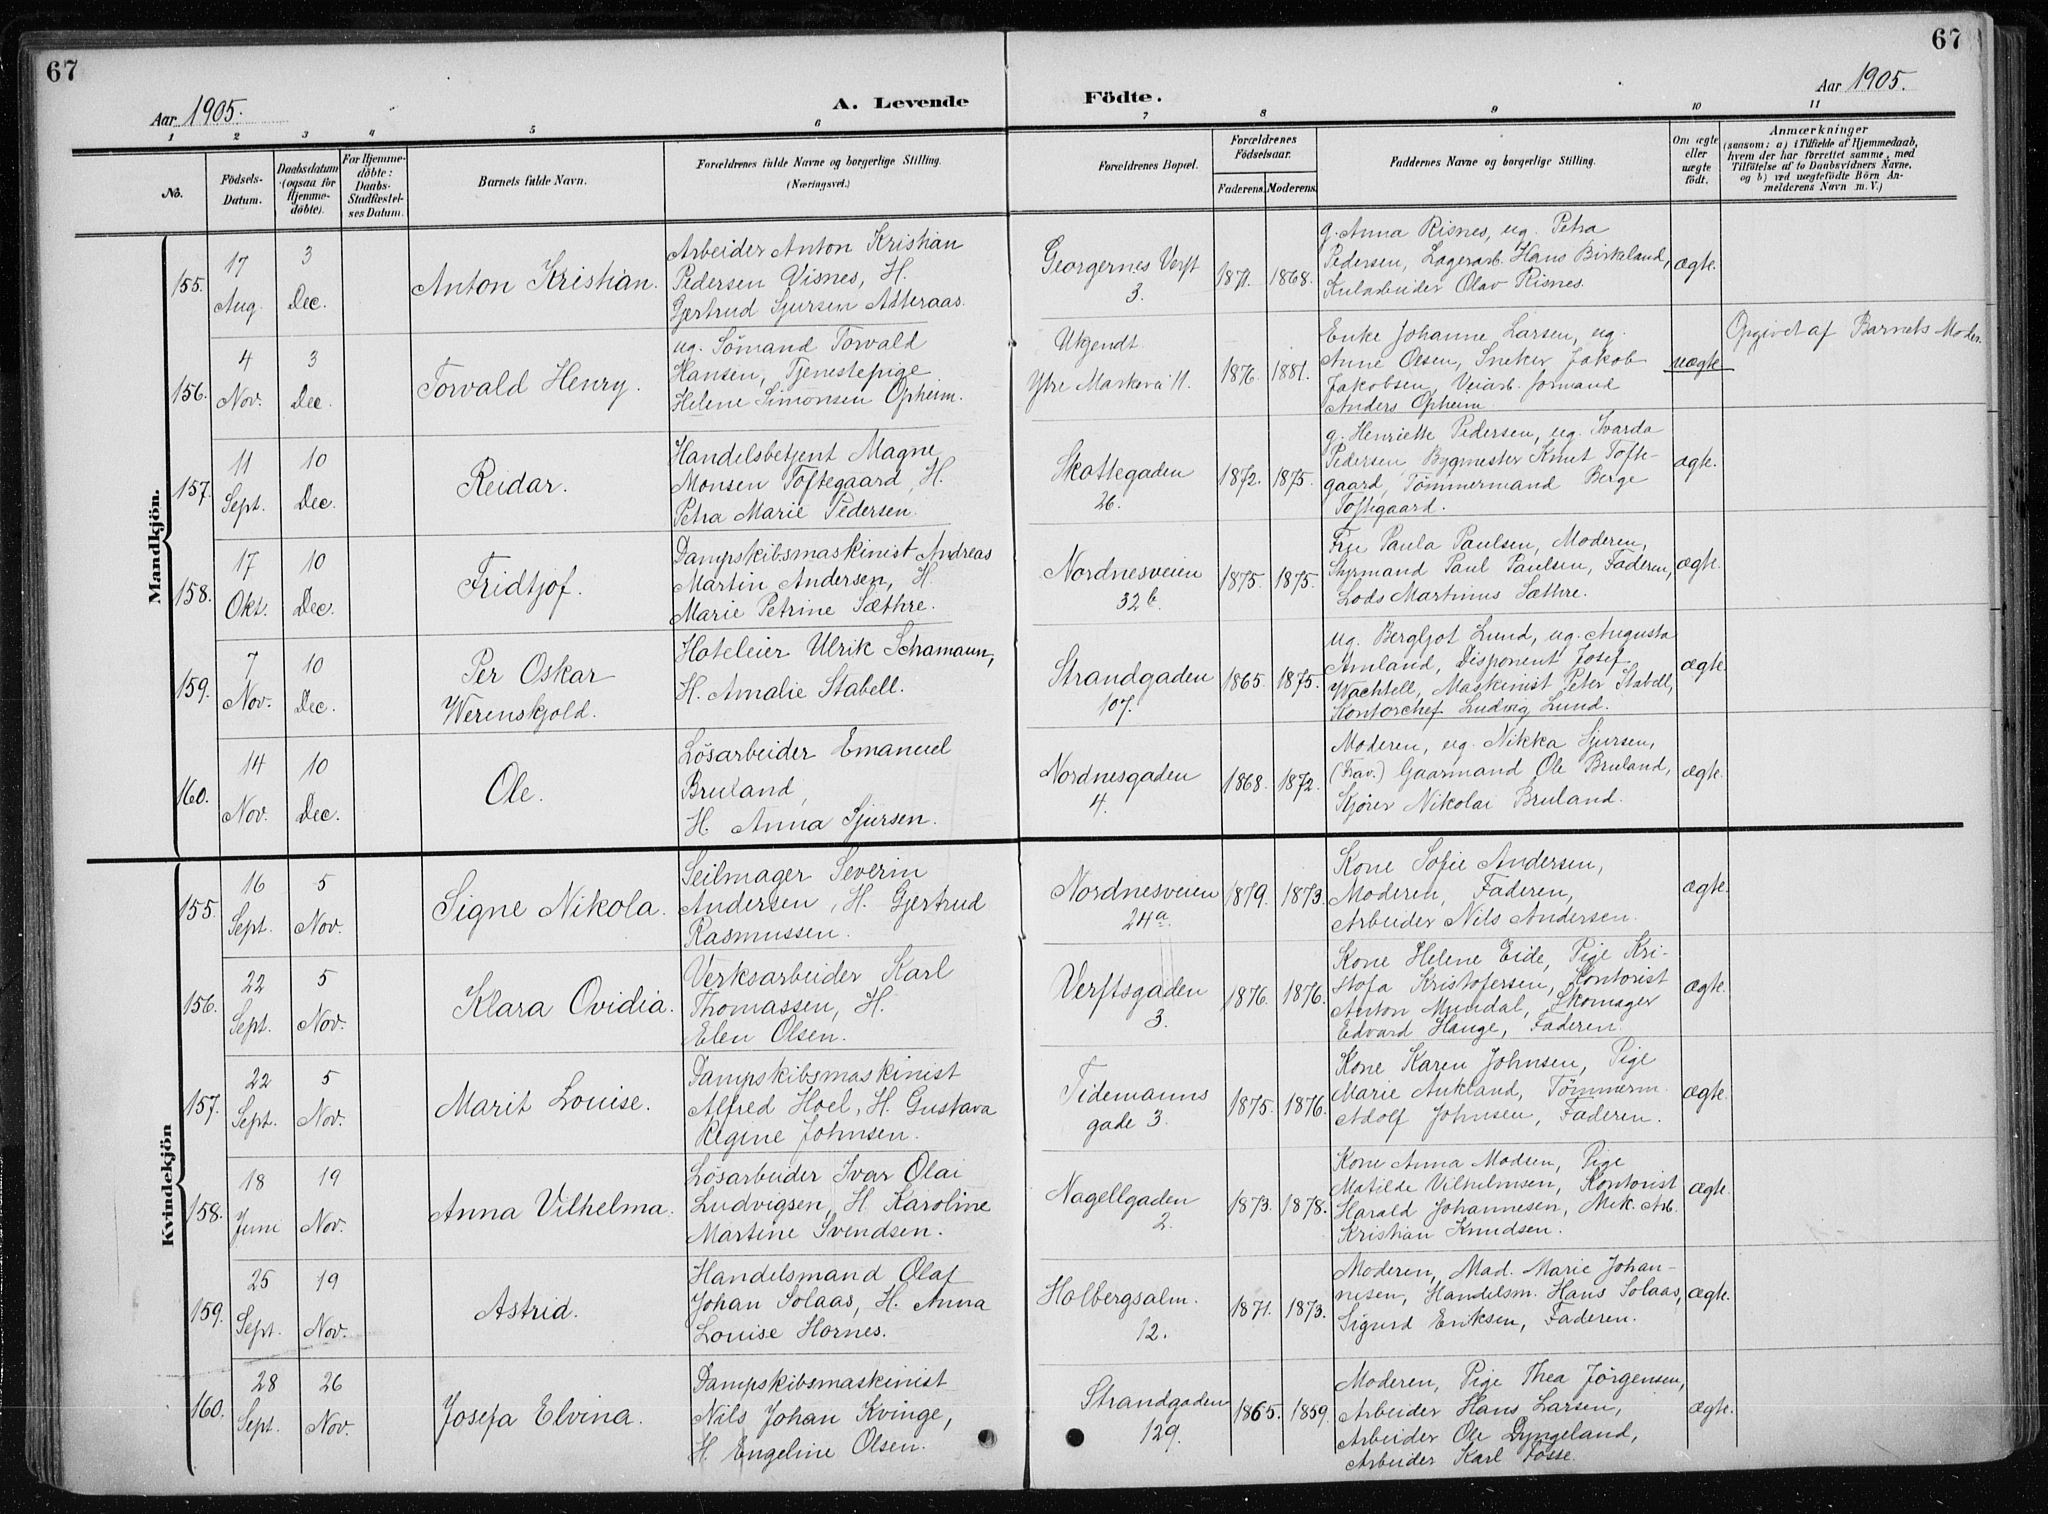 67
67
Aar 1905.
A. Levende
Födte.
Aar 1905.
1 2 3 4 5 6 7 8 9 10 11
No.
Födsels-
Datum.
Daabsdatum
(ogsaa for
Hjemme-
döbte).
For Hjemme-
döbte:
Daabs-
Stadfæstel-
ses Datum.
Barnets fulde Navn.
Forældrenes fulde Navne og borgerlige Stilling.
(Næringsvei.)
Forældrenes Bopæl.
Forældrenes
Födselsaar.
Faderens. Moderens.
Faddernes Navne og borgerlige Stilling.
Om ægte
eller
uægte
födt.
Anmærkninger
(saasom: a) i Tilfælde af Hjemmedaab,
hvem der har forrettet samme, med
Tilföielse af to Daabsvidners Navne,
og b) ved uægtefödte Börn An-
melderens Navn m. V.)
Mandkjön.
155.
17
Aug.
3
Dec.
Anton Kristian.
Arbeider Anton Kristian
Pedersen Visnes, H.
Gjertrud Sjursen Asteraas.
Georgernes Verft
3.
1871. 1868.
g. Anna Risnes, ug. Petra
Pedersen, Lagerarb. Hans Birkeland,
Kularbeider Olav Risnes.
ægte.
156.
4
Nov.
3
Dec.
Torvald Henry.
ug. Sömand Torvald
Hansen, Tjenestepige
Helene Simonsen Opheim.
Ukjendt
Ytre Markevei 11.
1876. 1881.
Enke Johanne Larsen, ug.
Anne Olsen, Sneker Jakob
Jakobsen, Veiarb. formand
Anders Opheim
uægte
Opgivet af Barnets Moder.
157.
11
Sept.
10
Dec.
Reidar.
Handelsbetjent Magne
Monsen Toftegaard, H.
Petra Marie Pedersen.
Skottegaden
26.
1872. 1875.
g. Henriette Pedersen, ug. Svarda
Pedersen Bygmester Knut Tofte-
gaard, Tömmermand Berge
Toftegaard.
ægte.
158.
17
Okt.
10
Dec.
Fridtjof.
Dampskibsmaskinist Andreas
Martin Andersen, H.
Marie Petrine Sæthre.
Nordnesveien
32b.
1875. 1875.
Fru Paula Paulsen, Moderen,
Styrmand Paul Paulsen, Faderen,
Lods Martinus Sæthre.
ægte.
159.
7
Nov.
10
Dec.
Per Oskar
Werenskjold.
Hoteleier Ulrik Schamaun,
H. Amalie Stabell.
Strandgaden
107.
1865. 1875.
ug. Bergljot Lund, ug. Augusta
Amland, Disponent Josef
Wachtell, Maskinist Peter Stabell,
Kontorchef Ludvig Lund.
ægte.
160.
14
Nov.
10
Dec.
Ole.
Lösarbeider Emanuel
Bruland,
H. Anna Sjursen.
Nordnesgaden
4.
1868. 1872.
Moderen, ug. Nikka Sjursen,
(Frav.) Gaarmand Ole Bruland,
Kjører Nikolai Bruland.
ægte.
Kvindekjön
155.
16
Sept.
5
Nov.
Signe Nikola.
Seilmager Severin
Andersen, H. Gjertrud
Rasmussen.
Nordnesveien
24a.
1879. 1873.
Kone Sofie Andersen,
Moderen, Faderen,
Arbeider Nils Andersen.
ægte.
156.
22
Sept.
5
Nov.
Klara Ovidia.
Verksarbeider Karl
Thomassen, H.
Elen Olsen.
Verftsgaden
3.
1876. 1876.
Kone Helene Eide, Pige Kri-
stofa Kristofersen, Kontorist
Anton Mundal, Skomager
Edvard Hauge, Faderen.
ægte.
157.
22
Sept.
5
Nov.
Marit Louise.
Dampskibsmaskinist
Alfred Hoel, H. Gustava
Regine Johnsen.
Tidemanns
gade 3.
1875. 1876.
Kone Karen Johnsen, Pige
Marie Aukland, Tömmerm.
Adolf Johnsen, Faderen.
ægte.
158.
18
Juni
19
Nov.
Anna Vilhelma.
Lösarbeider Ivar Olai
Ludvigsen, H. Karoline
Martine Svendsen.
Nagellgaden
2.
1873. 1878.
Kone Anna Madsen, Pige
Matilde Vilhelmsen, Kontorist
Harald Johannesen, Mek. Arb.
Kristian Knudsen.
ægte.
159.
25
Sept.
19
Nov.
Astrid.
Handelsmand Olaf
Johan Solaas, H. Anna
Louise Hornes.
Holbergsalm.
12.
1871. 1873.
Moderen, Mad. Marie Johan-
nesen, Handelsm. Hans Solaas,
Sigurd Eriksen, Faderen.
ægte.
160.
28
Sept.
26
Nov.
Josefa Elvina.
Dampskibsmaskinist
Nils Johan Kvinge,
H. Engeline Olsen.
Strandgaden
129.
1865. 1859.
Moderen, Pige Thea Jørgensen,
Arbeider Hans Larsen,
Arbeider Ole Dyngeland,
Arbeider Karl Fosse.
ægte.